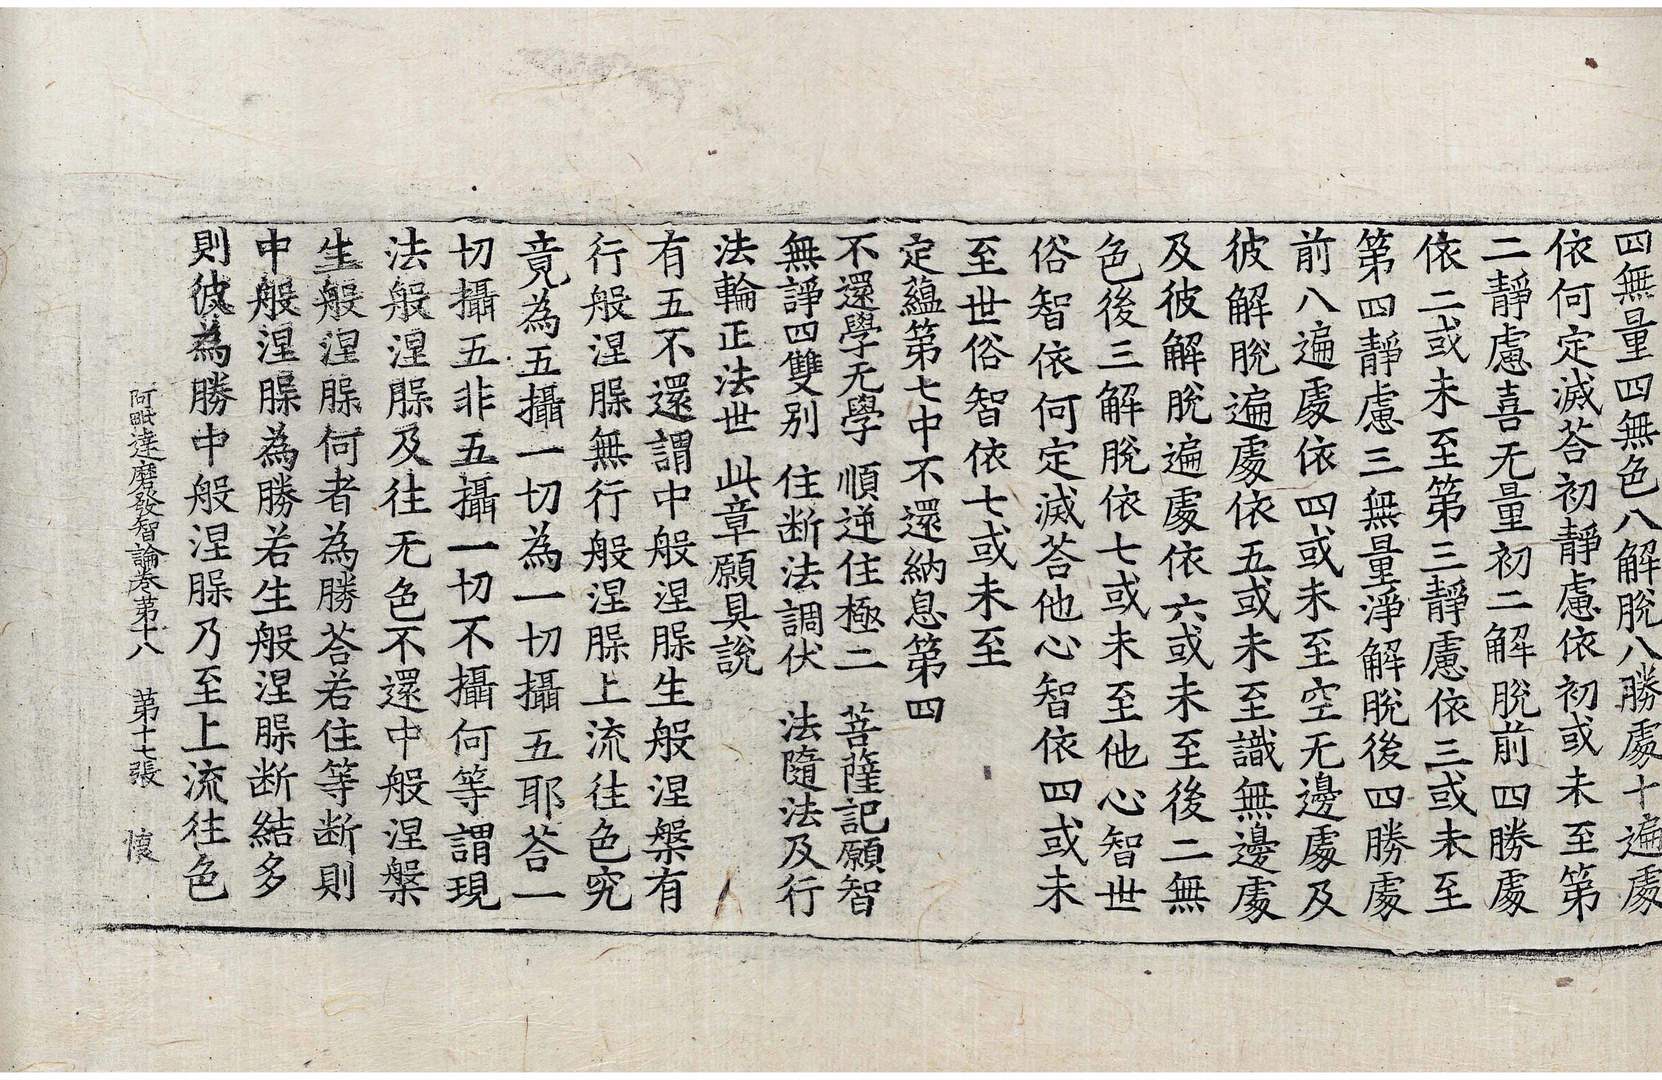 四無量四無色八解脫八勝處十遍處
依何定滅荅初靜慮依初或未至第
二靜慮喜无量初二解脫前四勝處
依二或未至第三靜慮依三或未至
第四靜慮三無量淨解脫後四勝處
前八遍處依四或未至空无邊處及
彼解脫遍處依五或未至識無邊處
及彼解脫遍處依六或未至後二無
色後三解脫依七或未至他心智世
俗智依何定滅荅他心智依四或未
至世俗智依七或未至
定蘊第七中不還納息第四
不還學无學 順逆住極二 菩薩記願智
無諍四雙別 住断法調伏 法隨法及行
法輪正法世 此章願具說
有五不還謂中般涅腺生般涅槃有
行般涅腺無行般涅腺上流往色究
竟為五攝一切為一切攝五耶荅一
切攝五非五攝一切不攝何等謂現
法般涅腺及往无色不還中般涅槃
生般涅腺何者為勝荅若住等断則
中般涅腺為勝若生般涅腺断結多
則彼為勝中般涅腺乃至上流往色
阿毗達磨發智論卷第十八 第十七張 懷